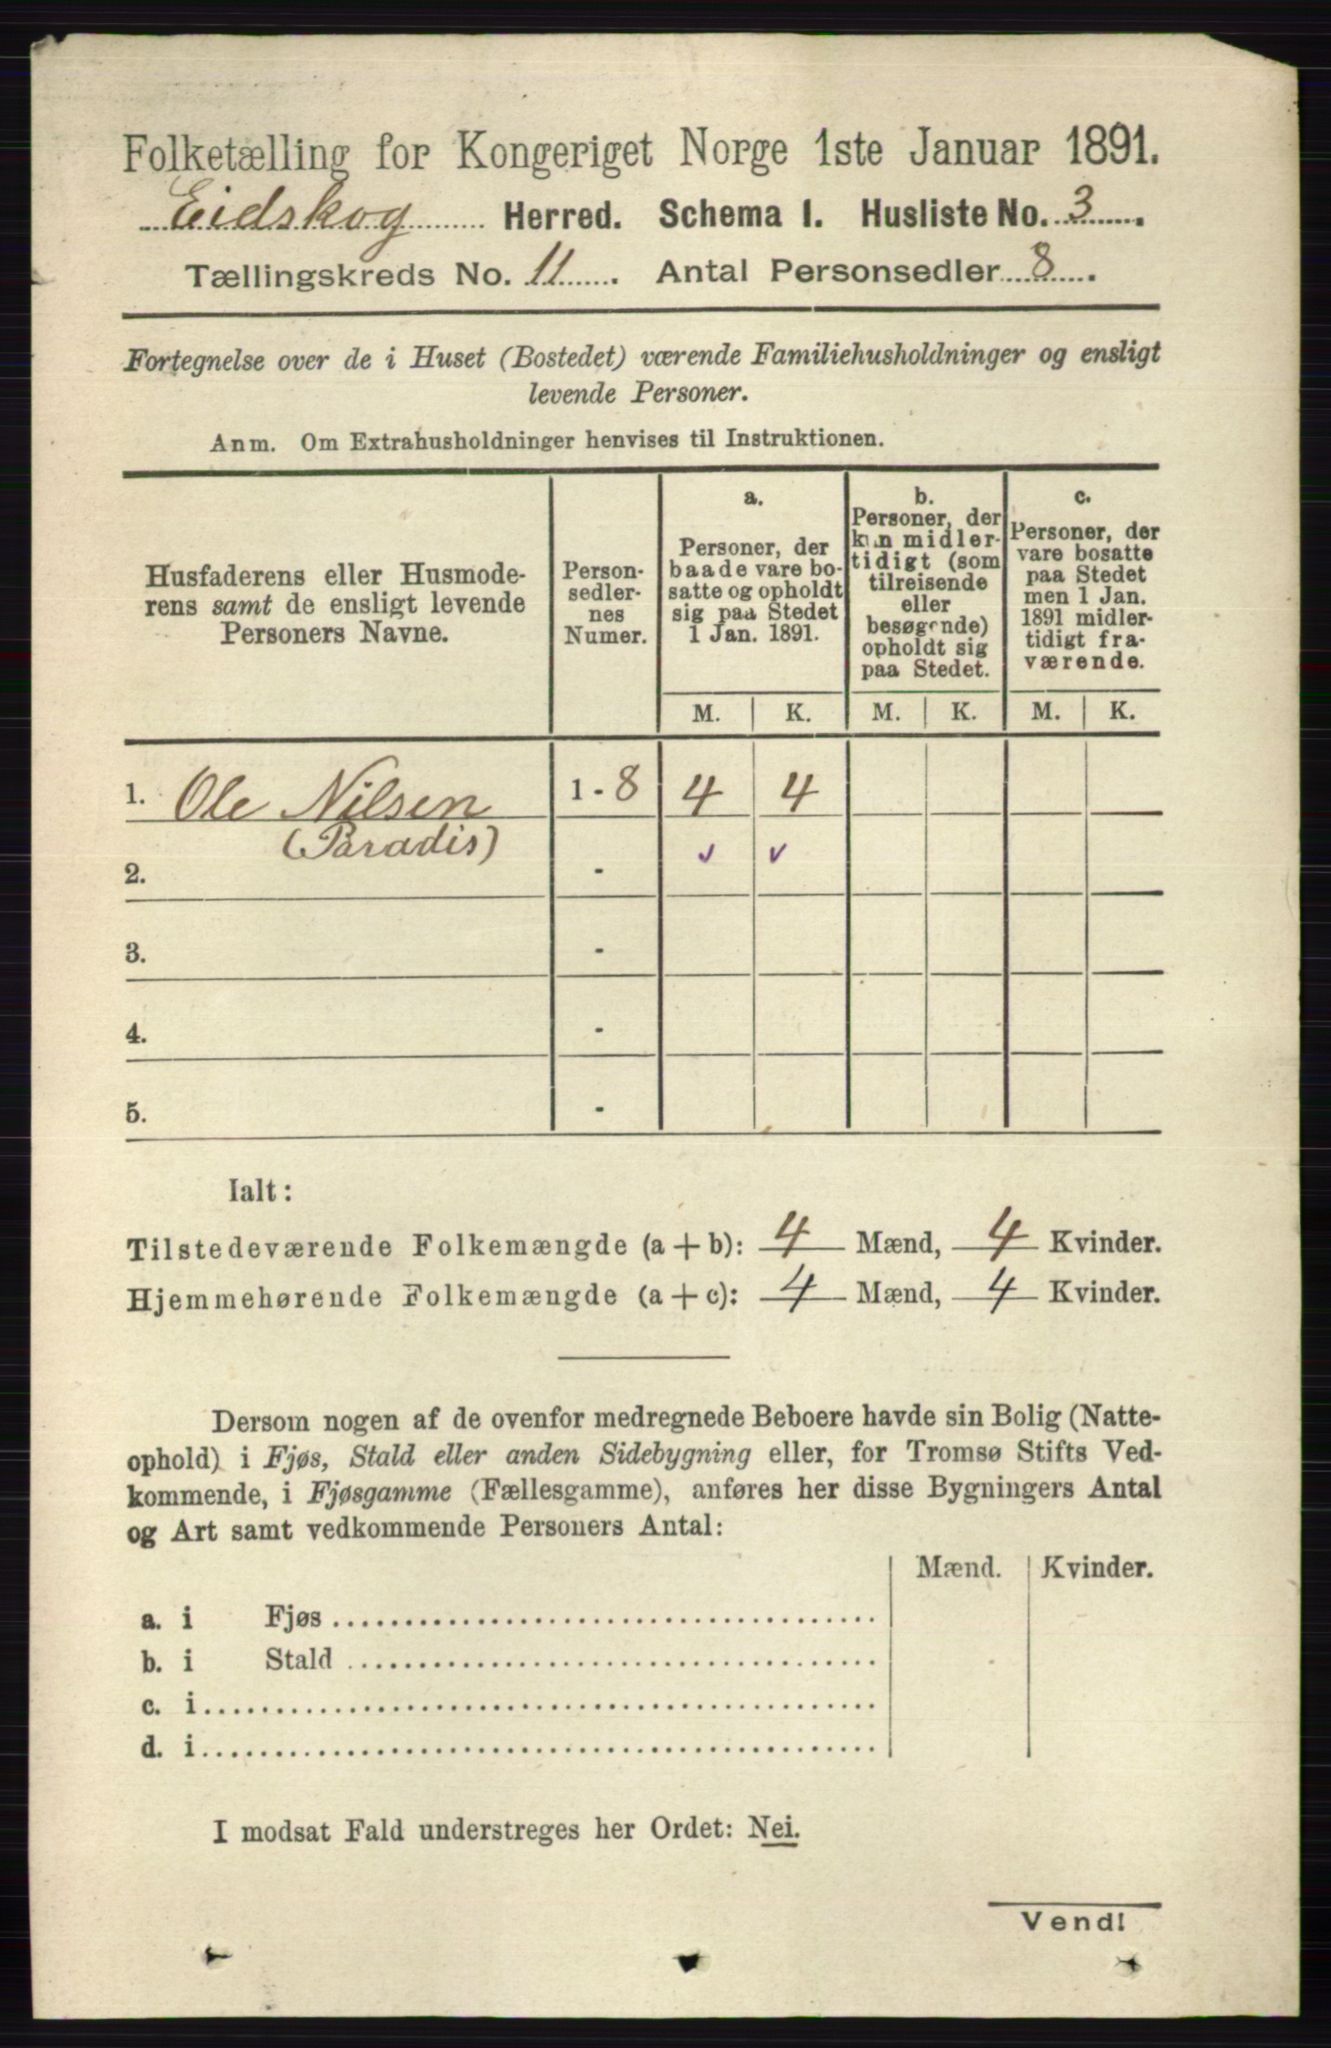 Folketælling for Kongeriget Norge 1ste Januar 1891.
Eidskog Herred. Schema 1. Husliste No. 3.
Tællingskreds No. 11. Antal Personsedler 8.
Fortegnelse over de i Huset (Bostedet) værende Familiehusholdninger og ensligt
levende Personer.
Anm. Om Extrahusholdninger henvises til Instruktionen.
Husfaderens eller Husmode-
rens samt de ensligt levende
Personers Navne.
Person-
sedler-
nes
Numer.
a.
Personer, der
baade vare bo-
satte og opholdt
sig paa Stedet
1 Jan. 1891.
b.
Personer, der
kun midler-
tidigt (som
tilreisende
eller
besøgende)
opholdt sig
paa Stedet.
c.
Personer, der
vare bosatte
paa Stedet
men 1 Jan.
1891 midler-
tidigt fra-
værende.
M. K. M. K. M. K.
1. Ole Nilsen 1 - 8 4 4
(Paradis)
2. - v v
3. -
4. -
5. -
Ialt:
Tilstedeværende Folkemængde (a + b): 4 Mænd, 4 Kvinder.
Hjemmehørende Folkemængde (a + c): 4 Mænd, 4 Kvinder.
Dersom nogen af de ovenfor medregnede Beboere havde sin Bolig (Natte-
ophold) i Fjøs, Stald eller anden Sidebygning eller, for Tromsø Stifts Ved-
kommende, i Fjøsgamme (Fællesgamme), anføres her disse Bygningers Antal
og Art samt vedkommende Personers Antal:
Mænd. Kvinder.
a. i Fjøs
b. i Stald
c. i
d. i
I modsat Fald understreges her Ordet: Nei.
Vend!